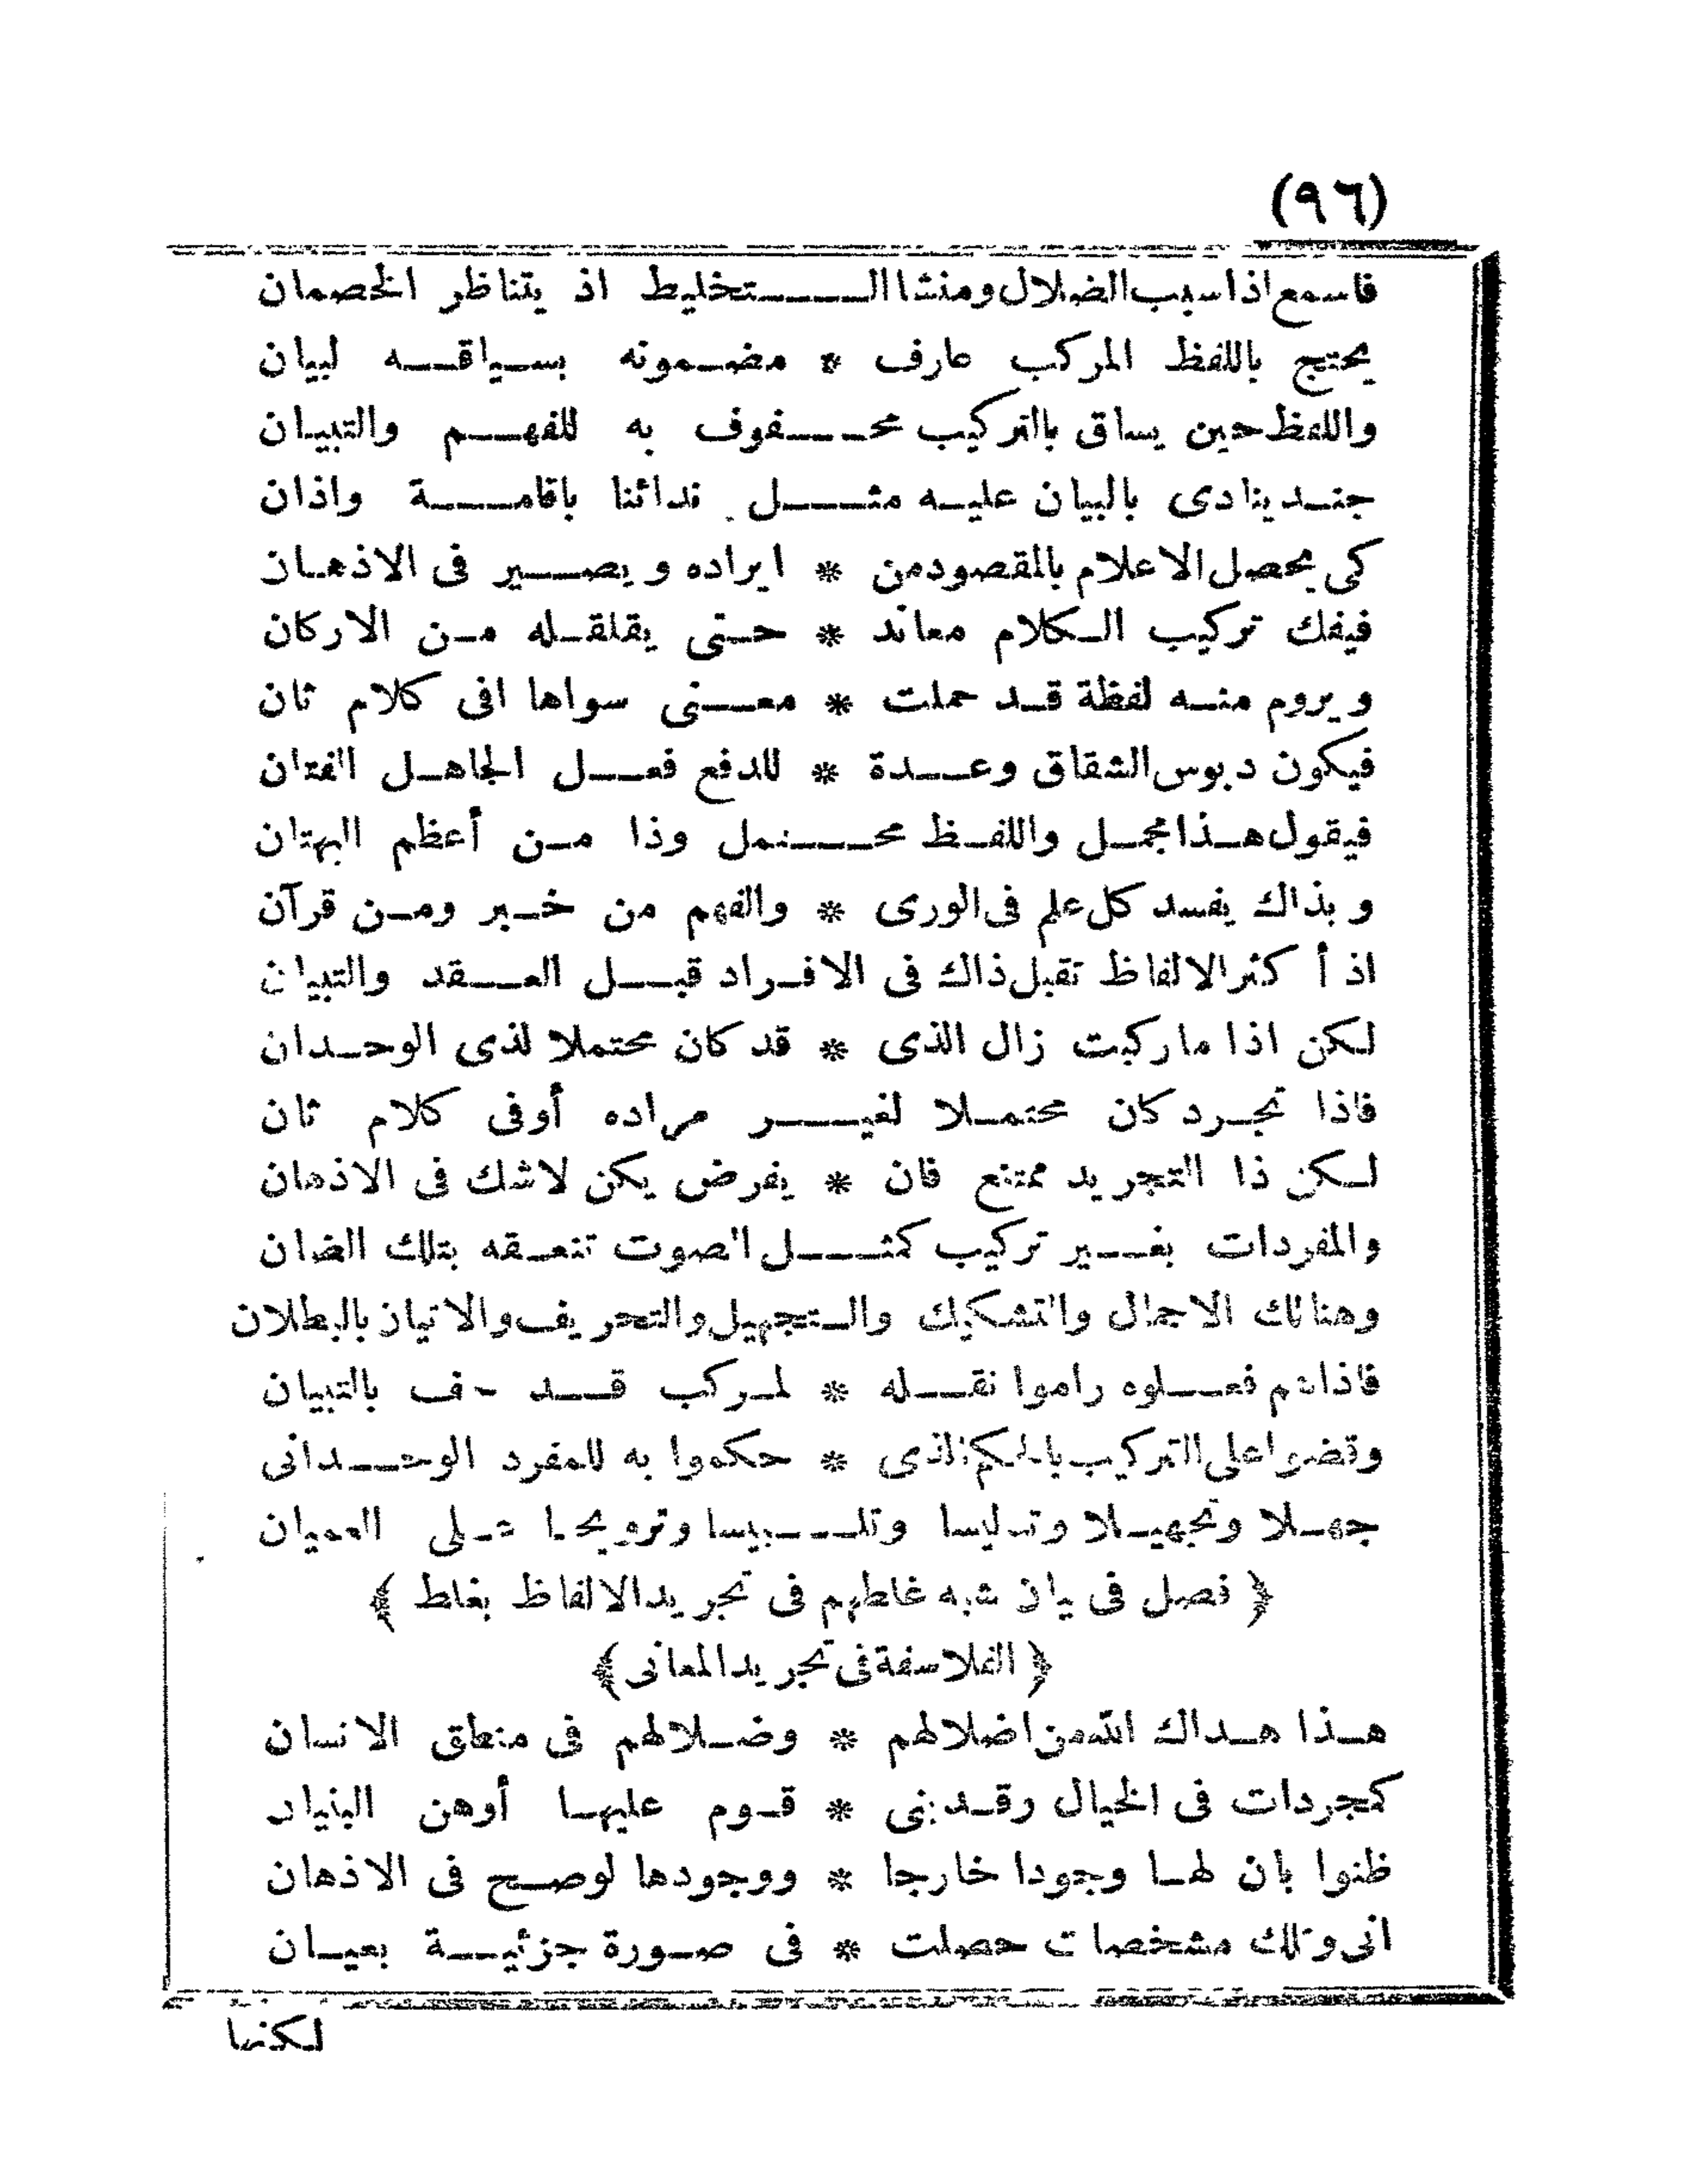 (٩٦)
فاسمع اذا سبب الضلال ومنشا التخليط اذ يتناظر الخصمان
يحتج باللفظ المركب عارف * مضمونه بسياقه لبيان
واللفظ حين يساق بالتركيب محفوف به للفهم والتبيان
جند ينادى بالبيان عليه مثل ندائنا باقامة واذان
كى يحصل الاعلام بالمقصود من * ايراده ويصير فى الاذهان
فيفك تركيب الكلام معاند * حتى يقلقله من الاركان
ويروم منه لفظة قد حملت * معنى سواها افى كلام ثان
فيكون دبوس الشقاق وعدة * للدفع فعل الجاهل الفتان
فيقول هذا مجمل واللفظ محتمل وذا من أعظم البهتان
وبذاك يفسد كل علم فى الورى * والفهم من خبر ومن قرآن
اذ أكثر الالفاظ تقبل ذاك فى الافراد قبل العقد والتبيان
لكن اذا ما ركبت زال الذى * قد كان محتملا لذى الوحدان
فاذا تجرد كان محتملا لغير مراده أوفى كلام ثان
لكن ذا التجريد ممتنع فان * يفرض يكن لاشك فى الاذهان
والمفردات بغير تركيب كمثل الصوت تنعقه بتلك الضان
وهنالك الاجمال والتشكيك والتجهيل والتحريف والاتيان بالبطلان
فاذا هم فعلوه راموا نقله * لمركب قد حف بالتبيان
وقضوا على التركيب بالحكم الذى * حكموا به للمفرد الوحدانى
جهلا وتجهيلا وتدليسا وتلبيسا وترويحا على العميان
﴿ فصل فى بيان شبه غلطهم فى تجريد الالفاظ بغلط ﴾
﴿ الفلاسفة فى تجريد المعانى ﴾
هذا هداك الله من اضلالهم * وضلالهم فى منطق الانسان
كمجردات فى الخيال وقد بنى * قوم عليها أوهن البنيان
ظنوا بان لها وجودا خارجا * ووجودها لو صح فى الاذهان
انى وتلك مشخصات حصلت * فى صورة جزئية بعيان
لكنها